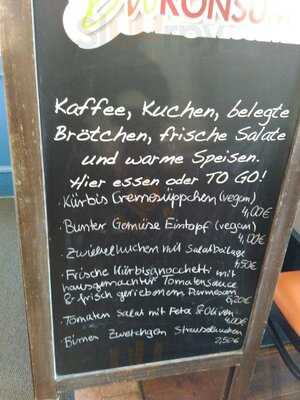 KONSUM
Kaffee, Kuchen, belegte
Brötchen, frische Salate
und warme Speisen.
Hier essen oder TO GO!
· Kürbis Cremesüppchen (vegan)
4,00€
· Bunter Gemüse Eintopf (vegan)
4,00€
· Zwiebelkuchen mit Salatbeilage
4,50€
· Frische Kürbisgnocchetti mit
hausgemachter Tomatensauce
& frisch geriebenem Parmesan
6,20€
· Tomaten Salat mit Feta & Oliven
4,00€
· Birnen Zwetschgen Streuselkuchen
2,50€